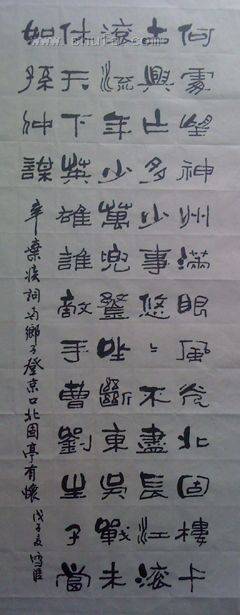 何處望神州滿眼風光北固樓千
古興亡多少事悠〻不盡長江滾
滾流年少萬兜鍪坐斷東吳戰未
休天下英雄誰敵手曹劉生子當
如孫仲謀
辛棄疾詞南鄉子登京口北固亭有懷 戊子夏